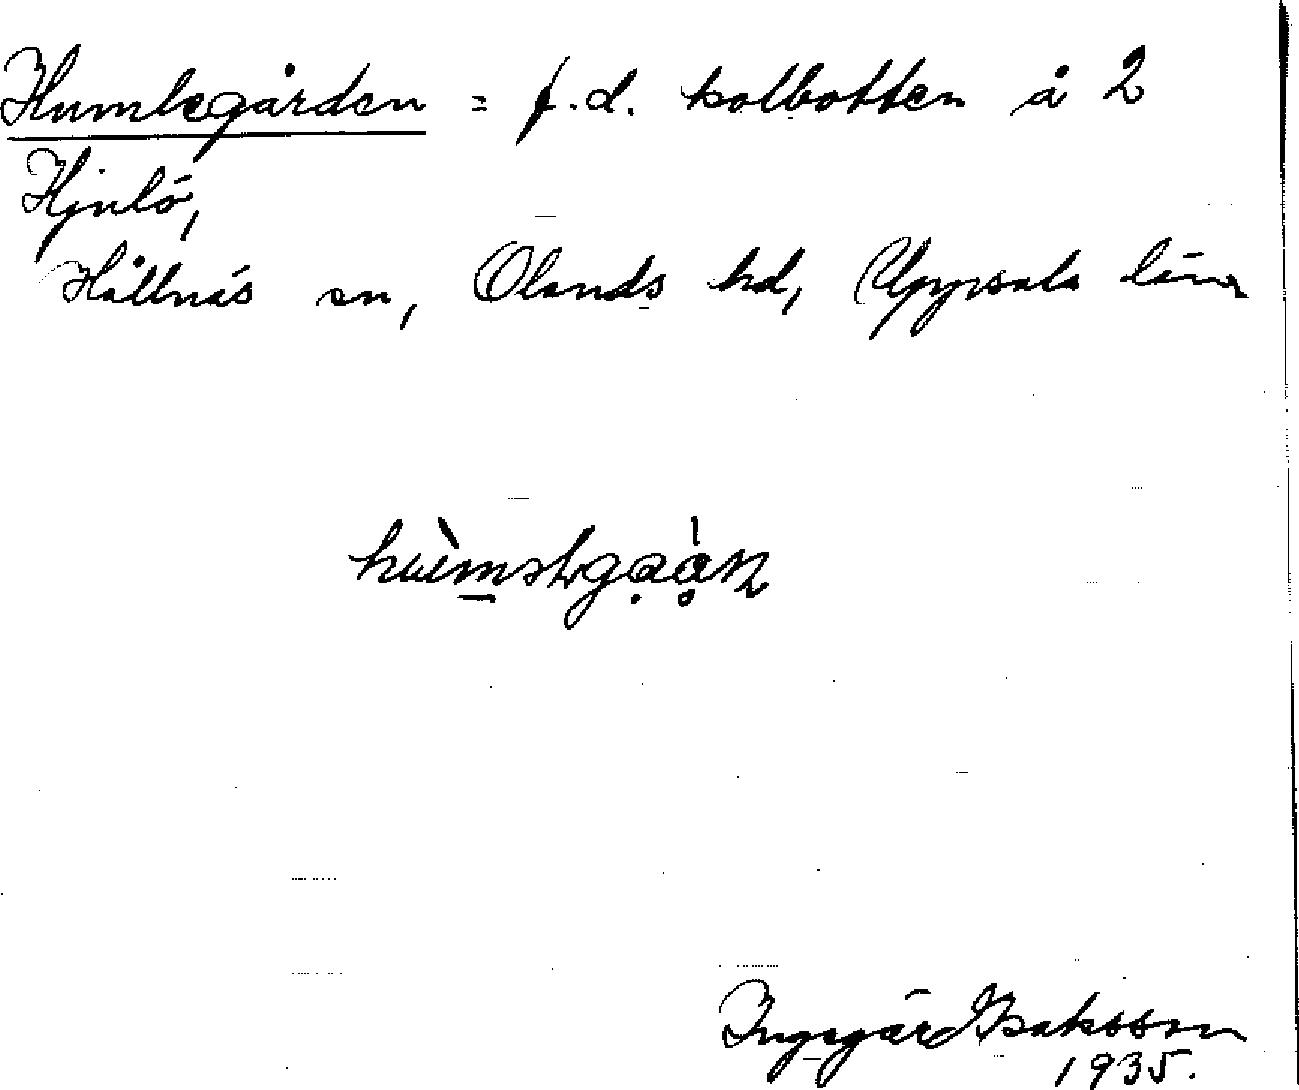 Humlegården = f.d. kolbotten å 2
Hjulö,
Hållnäs sn, Olands hd, Uppsala län
Ingegärd Isaksson
1935.